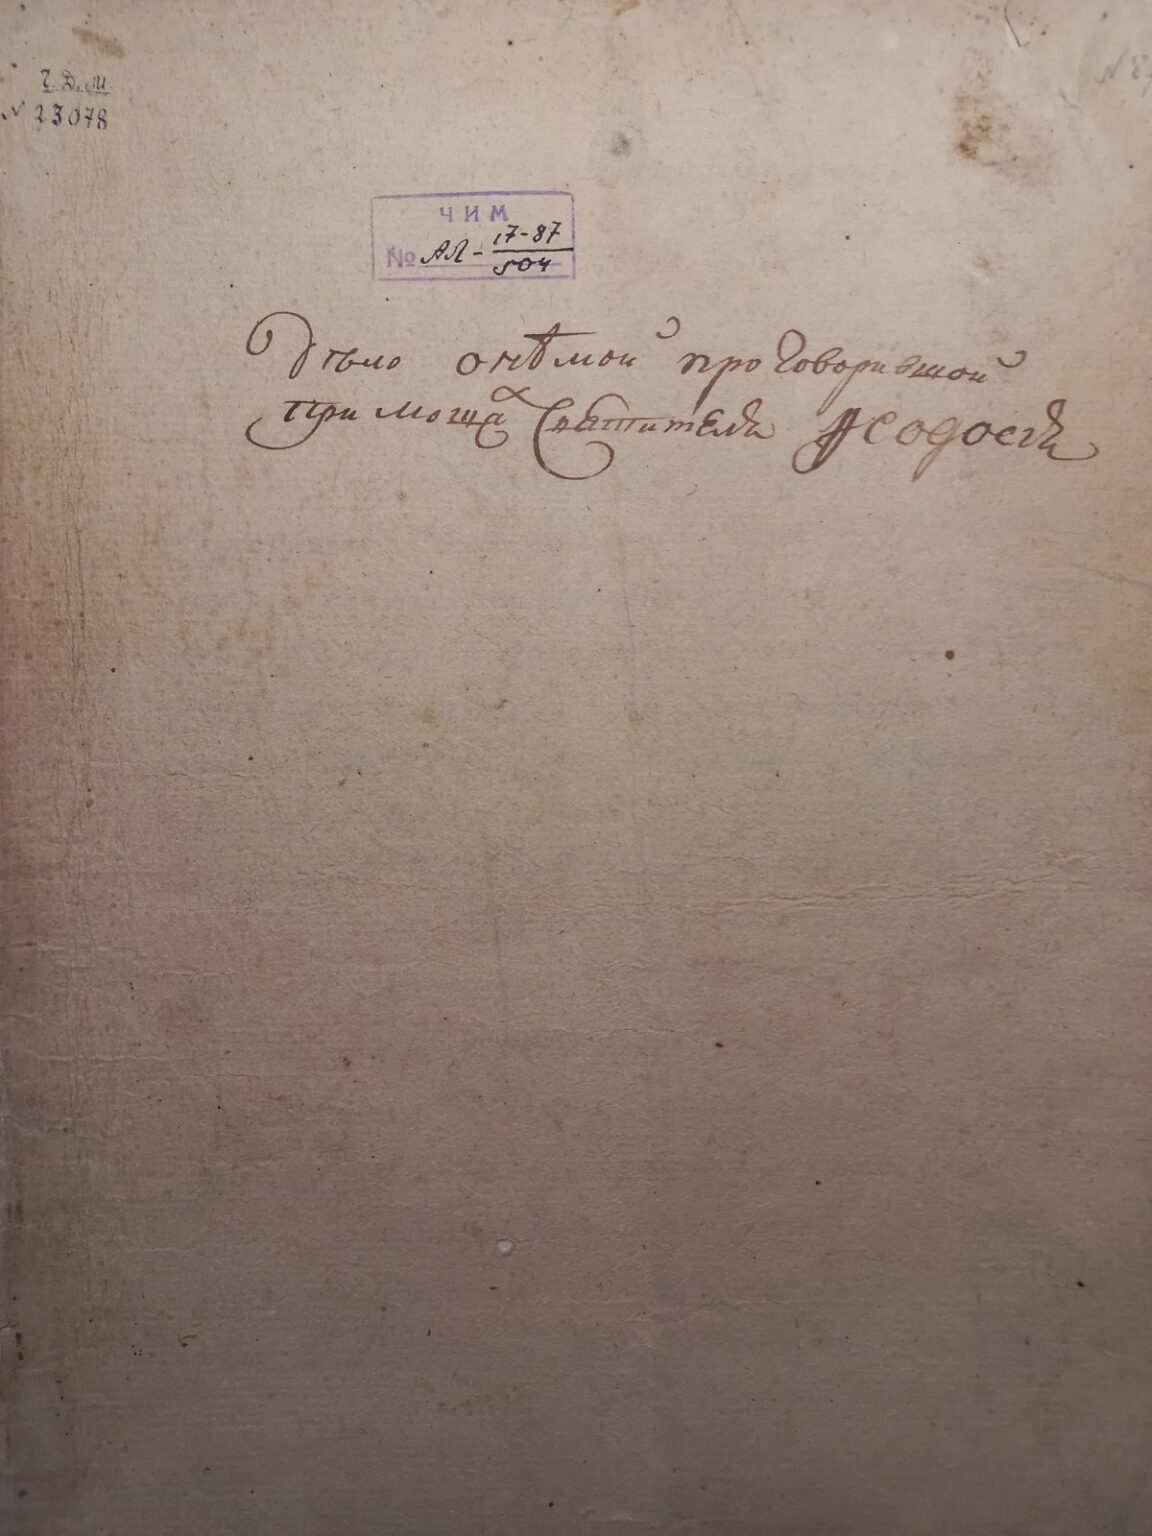 Ч. Д. М.
№ 23078
ЧИМ
№ АЛ - 17-87
504
Дѣло онѣмой проговорившой
при мощах Святителя Ѳеодосія